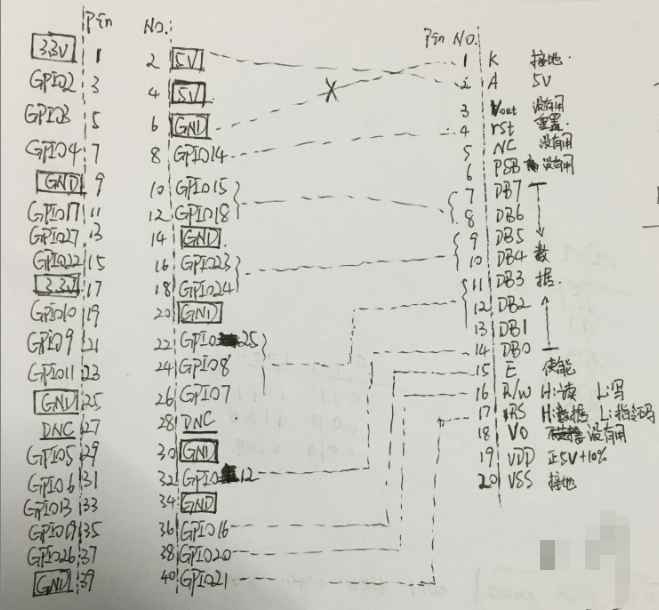 Pin NO.
3.3V 1 2 5V
GPIO2 3 4 5V
GPIO3 5 6 GND
GPIO4 7 8 GPIO14
GND 9 10 GPIO15
GPIO17 11 12 GPIO18
GPIO27 13 14 GND
GPIO22 15 16 GPIO23
3.3V 17 18 GPIO24
GPIO10 19 20 GND
GPIO9 21 22 GPIO25
GPIO11 23 24 GPIO8
GND 25 26 GPIO7
DNC 27 28 DNC
GPIO5 29 30 GND
GPIO6 31 32 GPIO12
GPIO13 33 34 GND
GPIO19 35 36 GPIO16
GPIO26 37 38 GPIO20
GND 39 40 GPIO21
Pin NO.
1 K 接地.
2 A 5V
3 Vout 没有用
4 rst 重置
5 NC 没有用
6 PSB 没有用
7 DB7
8 DB6
9 DB5
10 DB4 数
11 DB3 据.
12 DB2
13 DB1
14 DB0
15 E 使能
16 R/W H:读 L:写
17 RS H:数据 L:指令码
18 VO 没有用
19 VDD 正5V+10%
20 VSS 接地